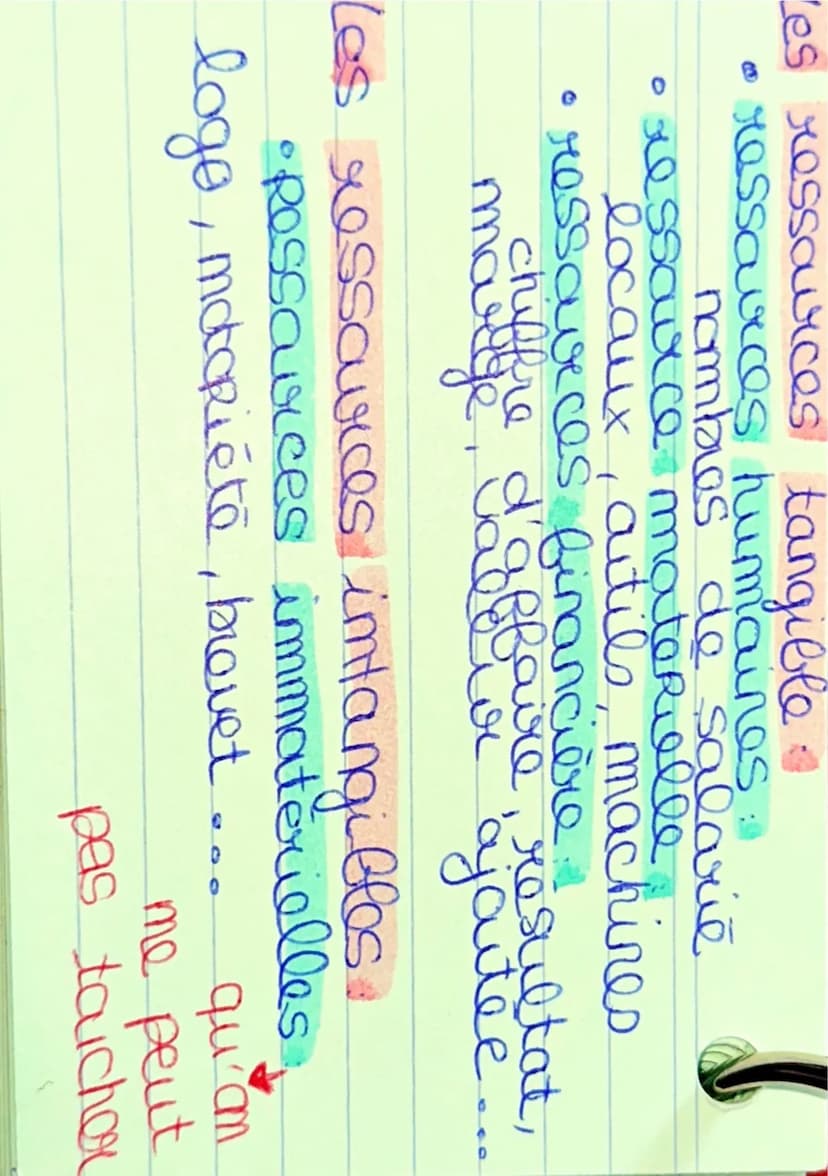 les ressources tangible :
• ressources humaines :
nombres de salarié
• ressource materielle :
locaux, outils, machines
• ressources financière :
chiffre d'affaire, resultat,
marge, valeur ajoutée ...
les ressources intangibles :
• Ressources immatérielles
logo, notoriété, brevet ... qu'on
ne peut
pas toucher